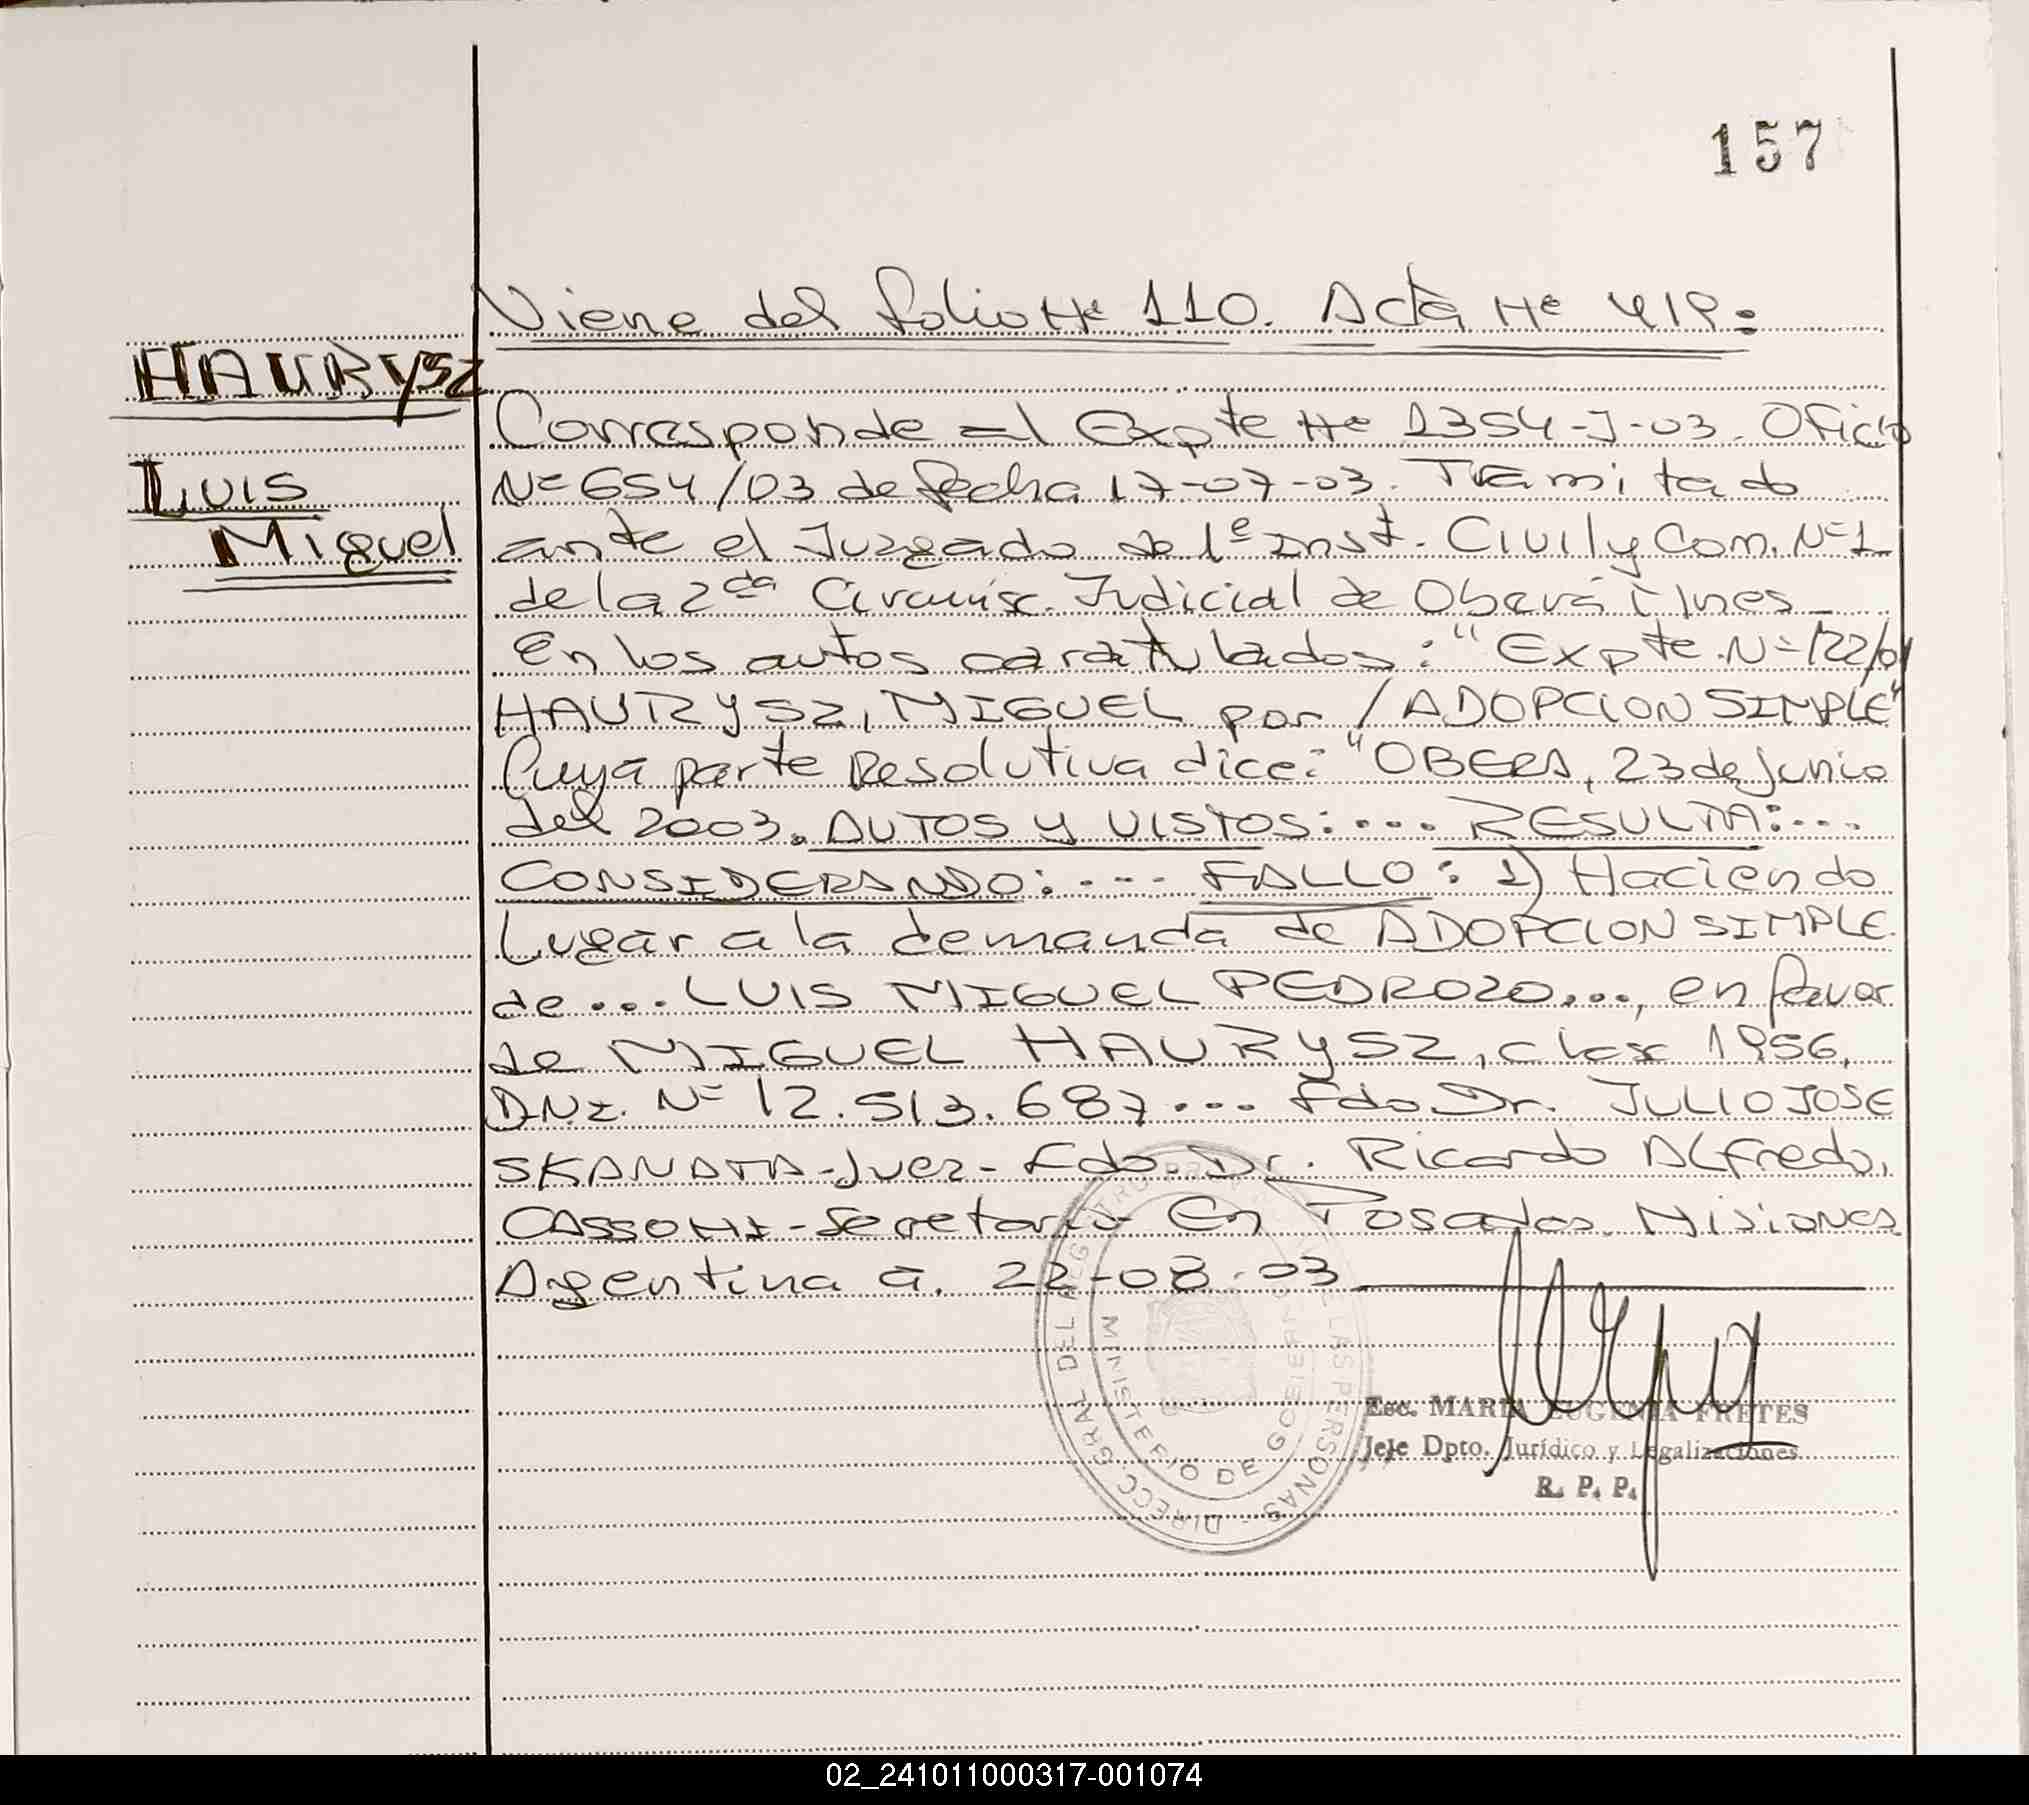 157
Viene del folio Nº 110. Acta Nº 419:
HAURYSZ
Luis
Miguel
Corresponde al Expte Nº 1354-J-03. Oficio
Nº 654/03 de fecha 17-07-03. Tramitado
ante el Juzgado de 1º Inst. Civil y Com. Nº 1
de la 2da Circunsc. Judicial de Oberá
En los autos caratulados: "Expte. Nº 122/01
HAURYSZ, MIGUEL por / ADOPCION SIMPLE"
Cuya parte Resolutiva dice: "OBERA, 23 de Junio
del 2003. AUTOS Y VISTOS: .... RESULTA: ...
CONSIDERANDO: .... FALLO: 1) Haciendo
Lugar a la demanda de ADOPCION SIMPLE
de ... LUIS MIGUEL PEDROZO..., en favor
de MIGUEL HAURYSZ, clase 1956,
DNI. Nº 12.513.687... Fdo Dr. JULIO JOSE
SKANATA-Juez- Fdo. Dr. Ricardo Alfredo,
CASSONI-Secretario En Posadas. Misiones
Argentina a. 22-08-03
DIRECC GRAL DEL REGISTRO PROV. DE LAS PERSONAS
MINISTERIO DE GOBIERNO
Esc. MARIA EUGENIA FRETES
Jefe Dpto. Jurídico y Legalizaciones
R. P. P.
02_241011000317-001074